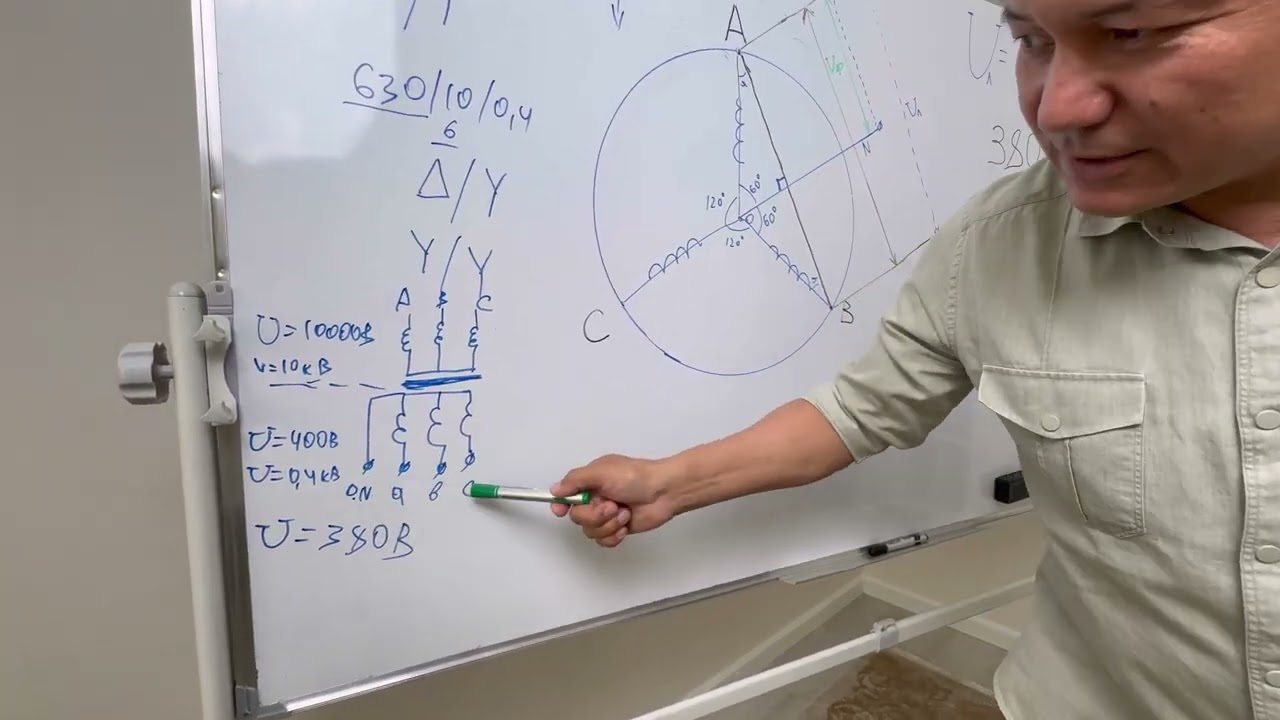 630/10/0,4
6
Δ/Y
Y/Y
A B C
U=10000В
U=10кВ
U=400В
U=0,4кВ
O,N a в c
U=380В
A
Uф
Uл
N
60°
120°
O
60°
120°
C
B
U₁=
380